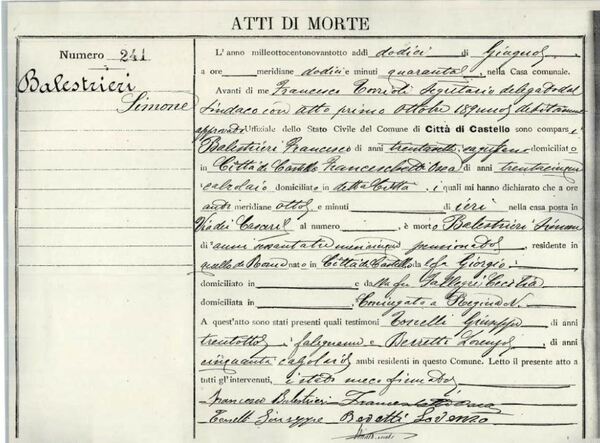 ATTI DI MORTE
Numero 241
Balestrieri
Simone
L'anno milleottocentonovantotto addì dodici di Giugno,
a ore meridiane dodici e minuti quaranta, nella Casa comunale.
Avanti di me Francesco Segretario delegato dal
Sindaco con atto primo Ottobre debitamente
approvato Uffiziale dello Stato Civile del Comune di Città di Castello sono comparsi
Balestrieri Francesco di anni domiciliato
in Città di Castello di anni trentacinque
calzolaio domiciliato in detta Città, i quali mi hanno dichiarato che a ore
anti meridiane otto e minuti di ieri nella casa posta in
Via dei al numero , è morto Balestrieri Simone
di anni sessantatre pensionato, residente in
nato in Città di Castello da fu Giorgio
domiciliato in e da fu Cecilia
domiciliata in , Coniugato a
A quest'atto sono stati presenti quali testimoni Tonelli Giuseppe di anni
trentotto, falegname e Berretti Lorenzo di anni
cinquanta calzolaio ambi residenti in questo Comune. Letto il presente atto a
tutti gl'intervenuti, meco firmato
Francesco Balestrieri
Tonelli Giuseppe Lorenzo